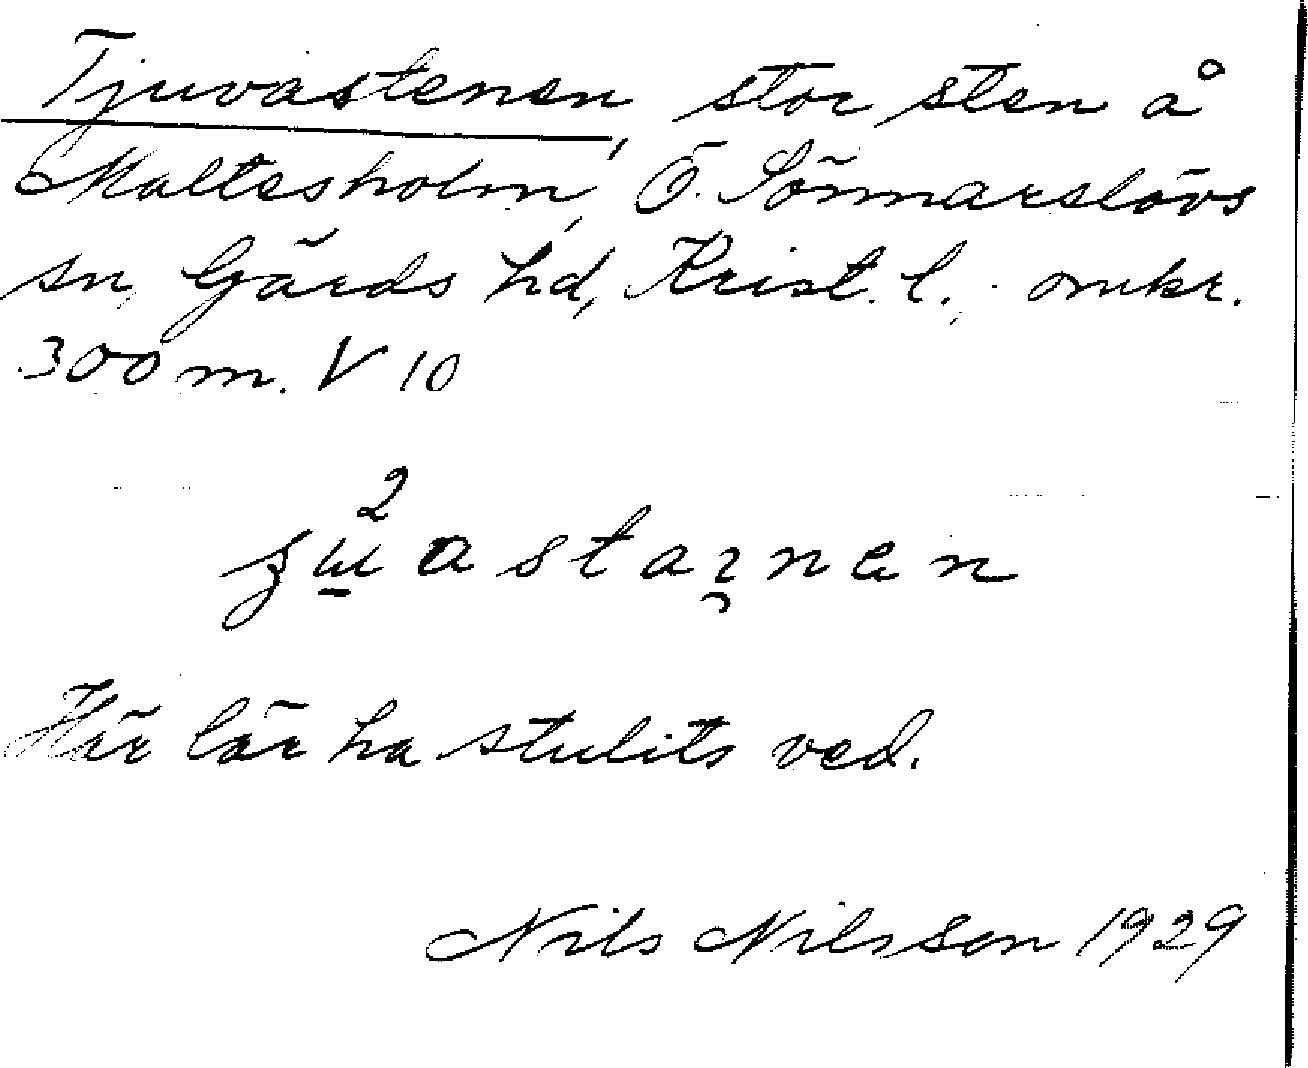 Tjuvastenen, stor sten å
Maltesholm, Ö. Sönnarslövs
sn, Gärds hd, Krist. l., omkr.
300 m. V 10
Här lär ha stulits ved.
Nils Nilsson 1929